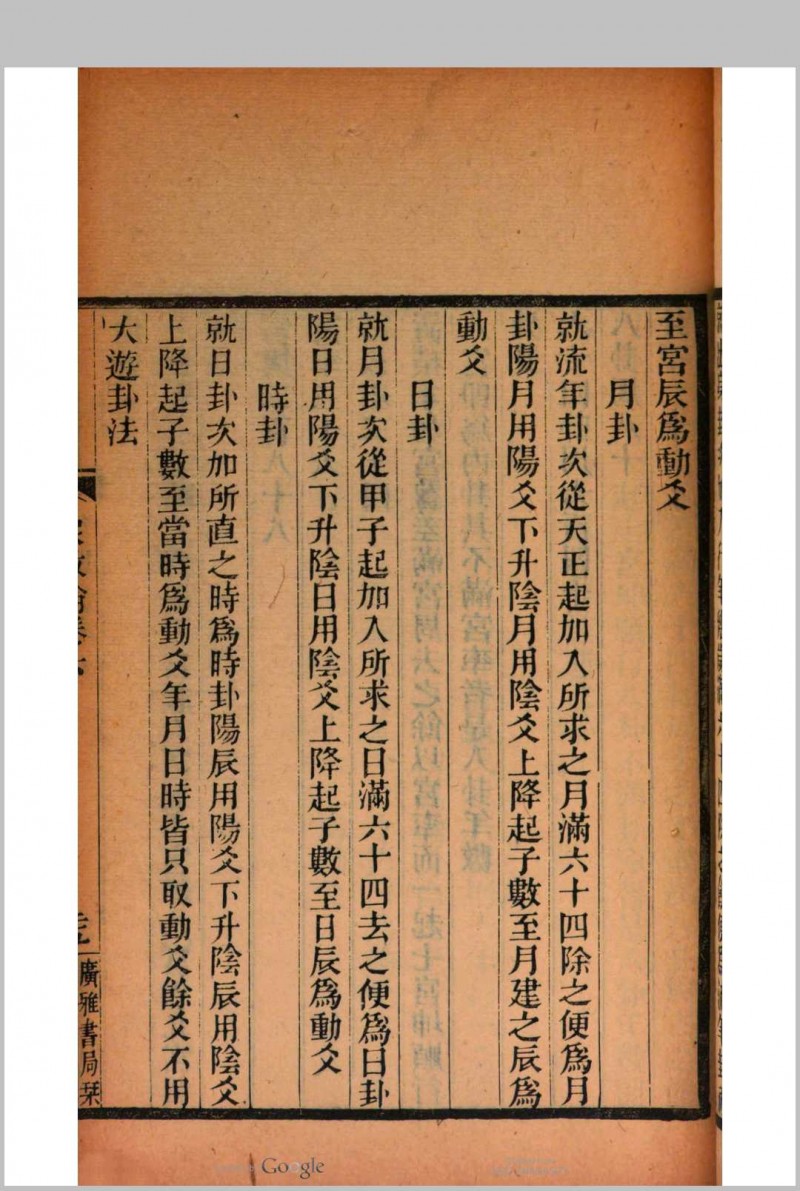 至宮辰爲動爻
月卦
就流年卦次從天正起加入所求之月滿六十四除之便爲月
卦陽月用陽爻下升陰月用陰爻上降起子數至月建之辰爲
動爻
日卦
就月卦次從甲子起加入所求之日滿六十四去之便爲日卦
陽日用陽爻下升陰日用陰爻上降起子數至日辰爲動爻
時卦
就日卦次加所直之時爲時卦陽辰用陽爻下升陰辰用陰爻
上降起子數至當時爲動爻年月日時皆只取動爻餘爻不用
大遊卦法
廣雅書局栞
Google